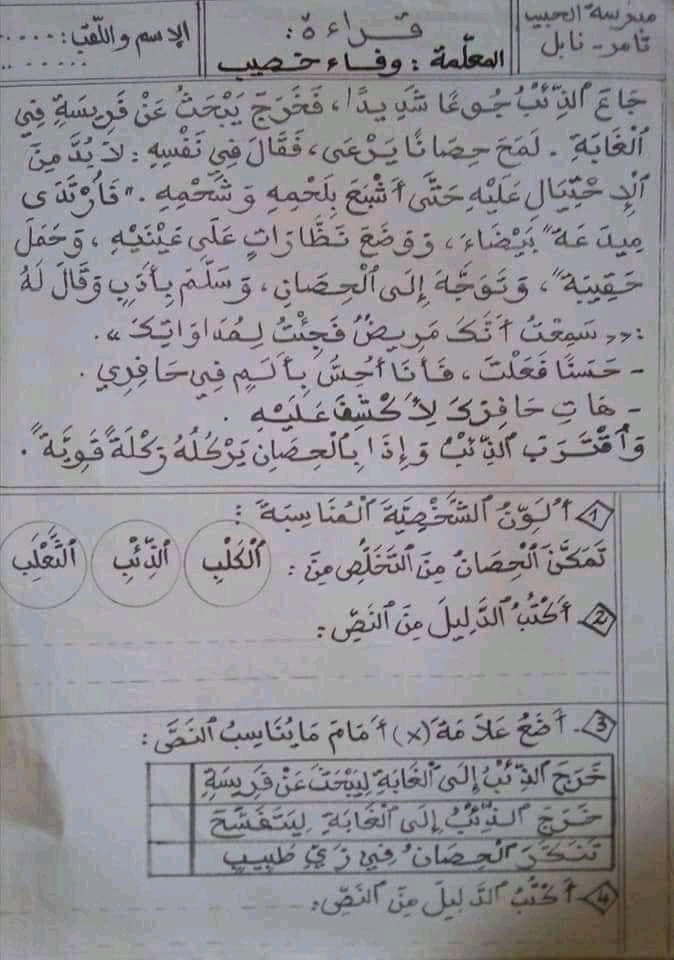 مدرسة الحبيب
ثامر - نابل
قراءة:
المعلّمة: وفاء خصيب
الإسم واللّقب: .....
......
جَاعَ الذِّئْبُ جُوعًا شَدِيدًا، فَخَرَجَ يَبْحَثُ عَنْ فَرِيسَةٍ فِي
الْغَابَةِ. لَمَحَ حِصَانًا يَرْعَى، فَقَالَ فِي نَفْسِهِ: لَا بُدَّ مِنَ
الْإِحْتِيَالِ عَلَيْهِ حَتَّى أَشْبَعَ بِلَحْمِهِ وَشَحْمِهِ." فَارْتَدَى
مِيدَعَةً بَيْضَاءَ، وَوَضَعَ نَظَّارَاتٍ عَلَى عَيْنَيْهِ، وَحَمَلَ
حَقِيبَةً، وَتَوَجَّهَ إِلَى الْحِصَانِ، وَسَلَّمَ بِأَدَبٍ وَقَالَ لَهُ
:«سَمِعْتُ أَنَّكَ مَرِيضٌ فَجِئْتُ لِمُدَاوَاتِكَ».
- حَسَنًا فَعَلْتَ، فَأَنَا أُحِسُّ بِأَلَمٍ فِي حَافِرِي.
- هَاتِ حَافِرَكَ لِأَكْشِفَ عَلَيْهِ.
وَاقْتَرَبَ الذِّئْبُ وَإِذَا بِالْحِصَانِ يَرْكُلُهُ رَكْلَةً قَوِيَّةً.
1 أُلَوِّنُ الشَّخْصِيَّةَ الْمُنَاسِبَةَ:
تَمَكَّنَ الْحِصَانُ مِنَ التَّخَلُّصِ مِنَ: الْكَلْبِ الذِّئْبِ الثَّعْلَبِ
2 أَكْتُبُ الدَّلِيلَ مِنَ النَّصِّ:
3 - أَضَعُ عَلَامَةَ (x) أَمَامَ مَا يُنَاسِبُ النَّصَّ:
خَرَجَ الذِّئْبُ إِلَى الْغَابَةِ لِيَبْحَثَ عَنْ فَرِيسَةٍ
خَرَجَ الذِّئْبُ إِلَى الْغَابَةِ لِيَتَفَسَّحَ
تَنَكَّرَ الْحِصَانُ فِي زِيِّ طَبِيبٍ
4 - أَكْتُبُ الدَّلِيلَ مِنَ النَّصِّ: